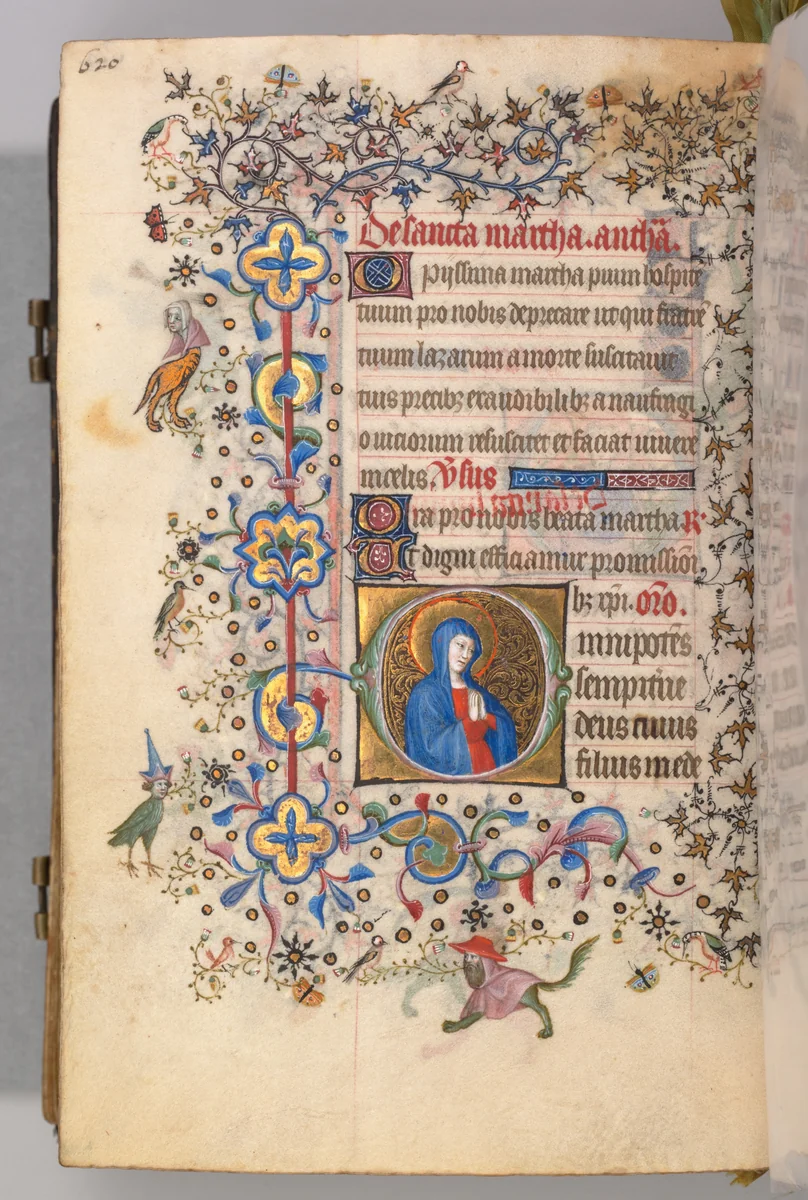 620
De sancta martha. anthā.
O pijssima martha pium hospitē
tuum pro nobis deprecare ut qui fratrē
tuum lazarum a morte suscitauit
tuis precibꝫ exaudibilibꝫ a naufragi
o uiciorum resuscitet et faciat uiuere
in celis. v̄sus
Ora pro nobis beata martha R.
Ut digni efficiamur promissiōi
bꝫ xp̄i. orō.
Omnipotēs
sempit'ne
deus cuius
filius in ede